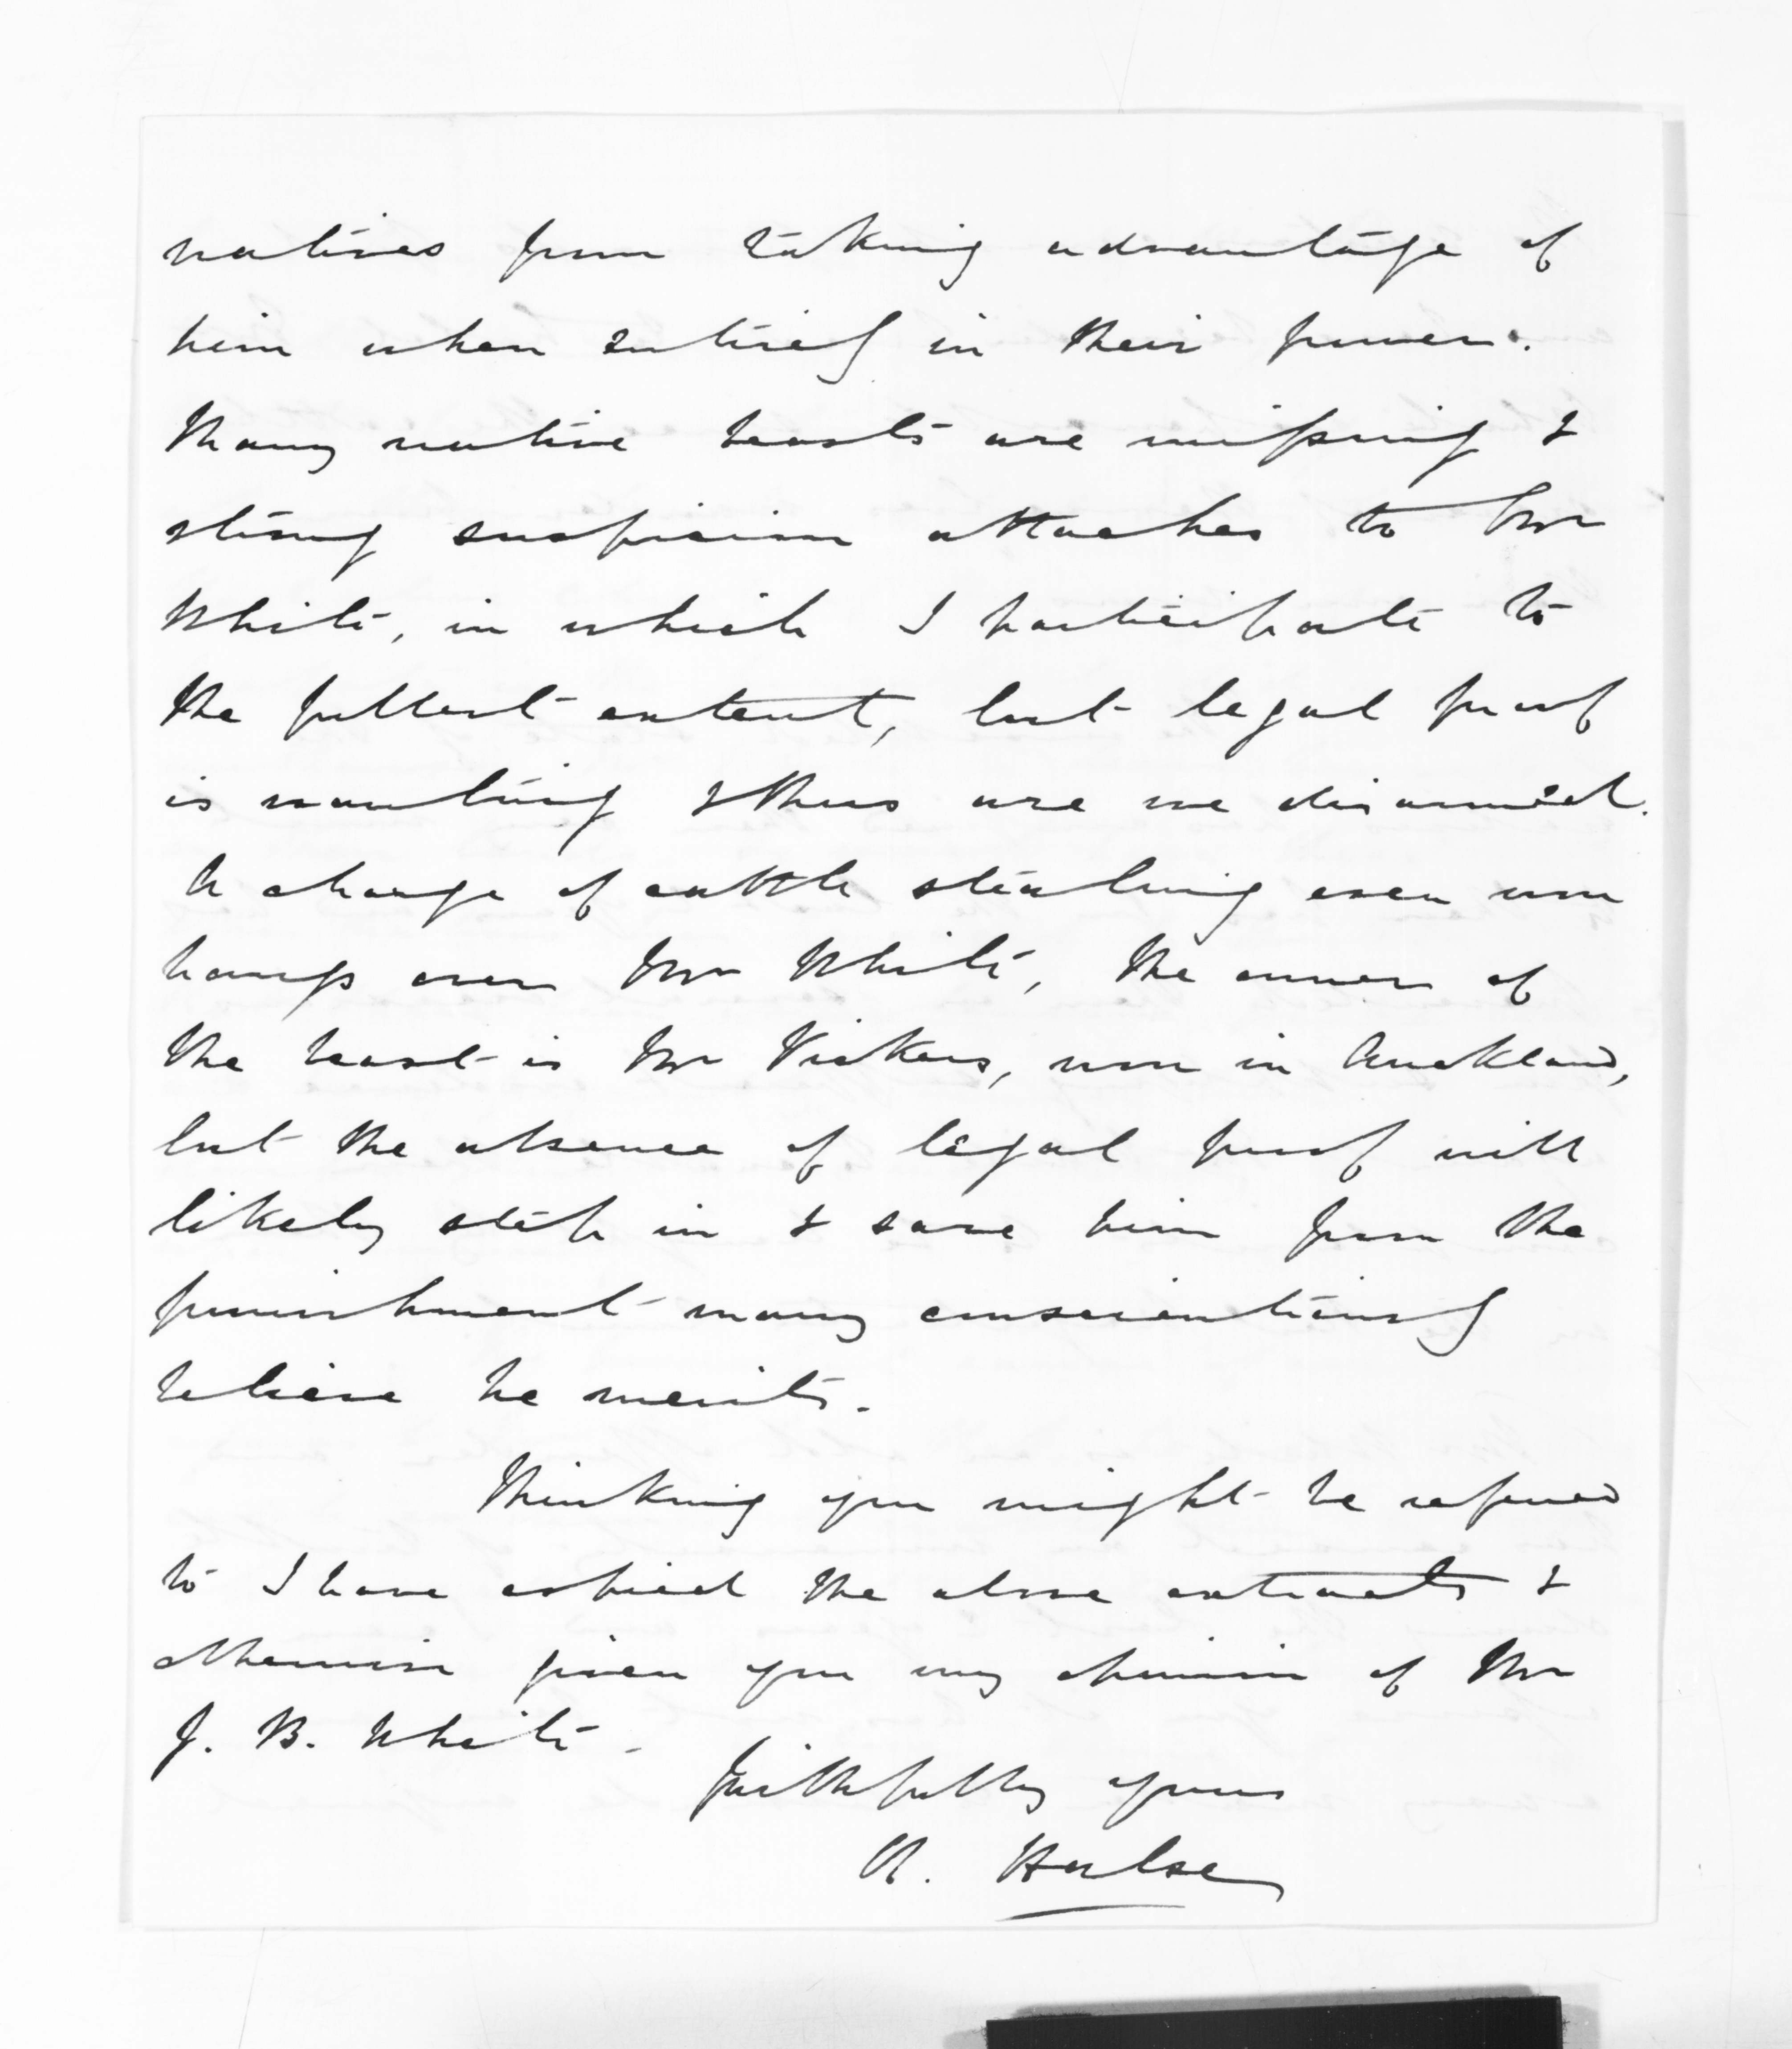 natives from taking advantage of
him when entirely in their power.
Many native beasts are missing &
strong suspicion attaches to Mr
White, in which I participate to
the fullest extent, but legal proof
is wanting & thus are we disarmed.
A charge of cattle stealing even now
hangs over Mr White, the owner of
the beast is Mr Vickers, now in Auckland,
but the absence of legal proof will
likely step in & save him from the
punishment many conscientiously
believe he merits.
Thinking you might be referred
to I have copied the above extracts &
otherwise given you my opinion of Mr
J. B. White.
Faithfully yours
R. Hulse